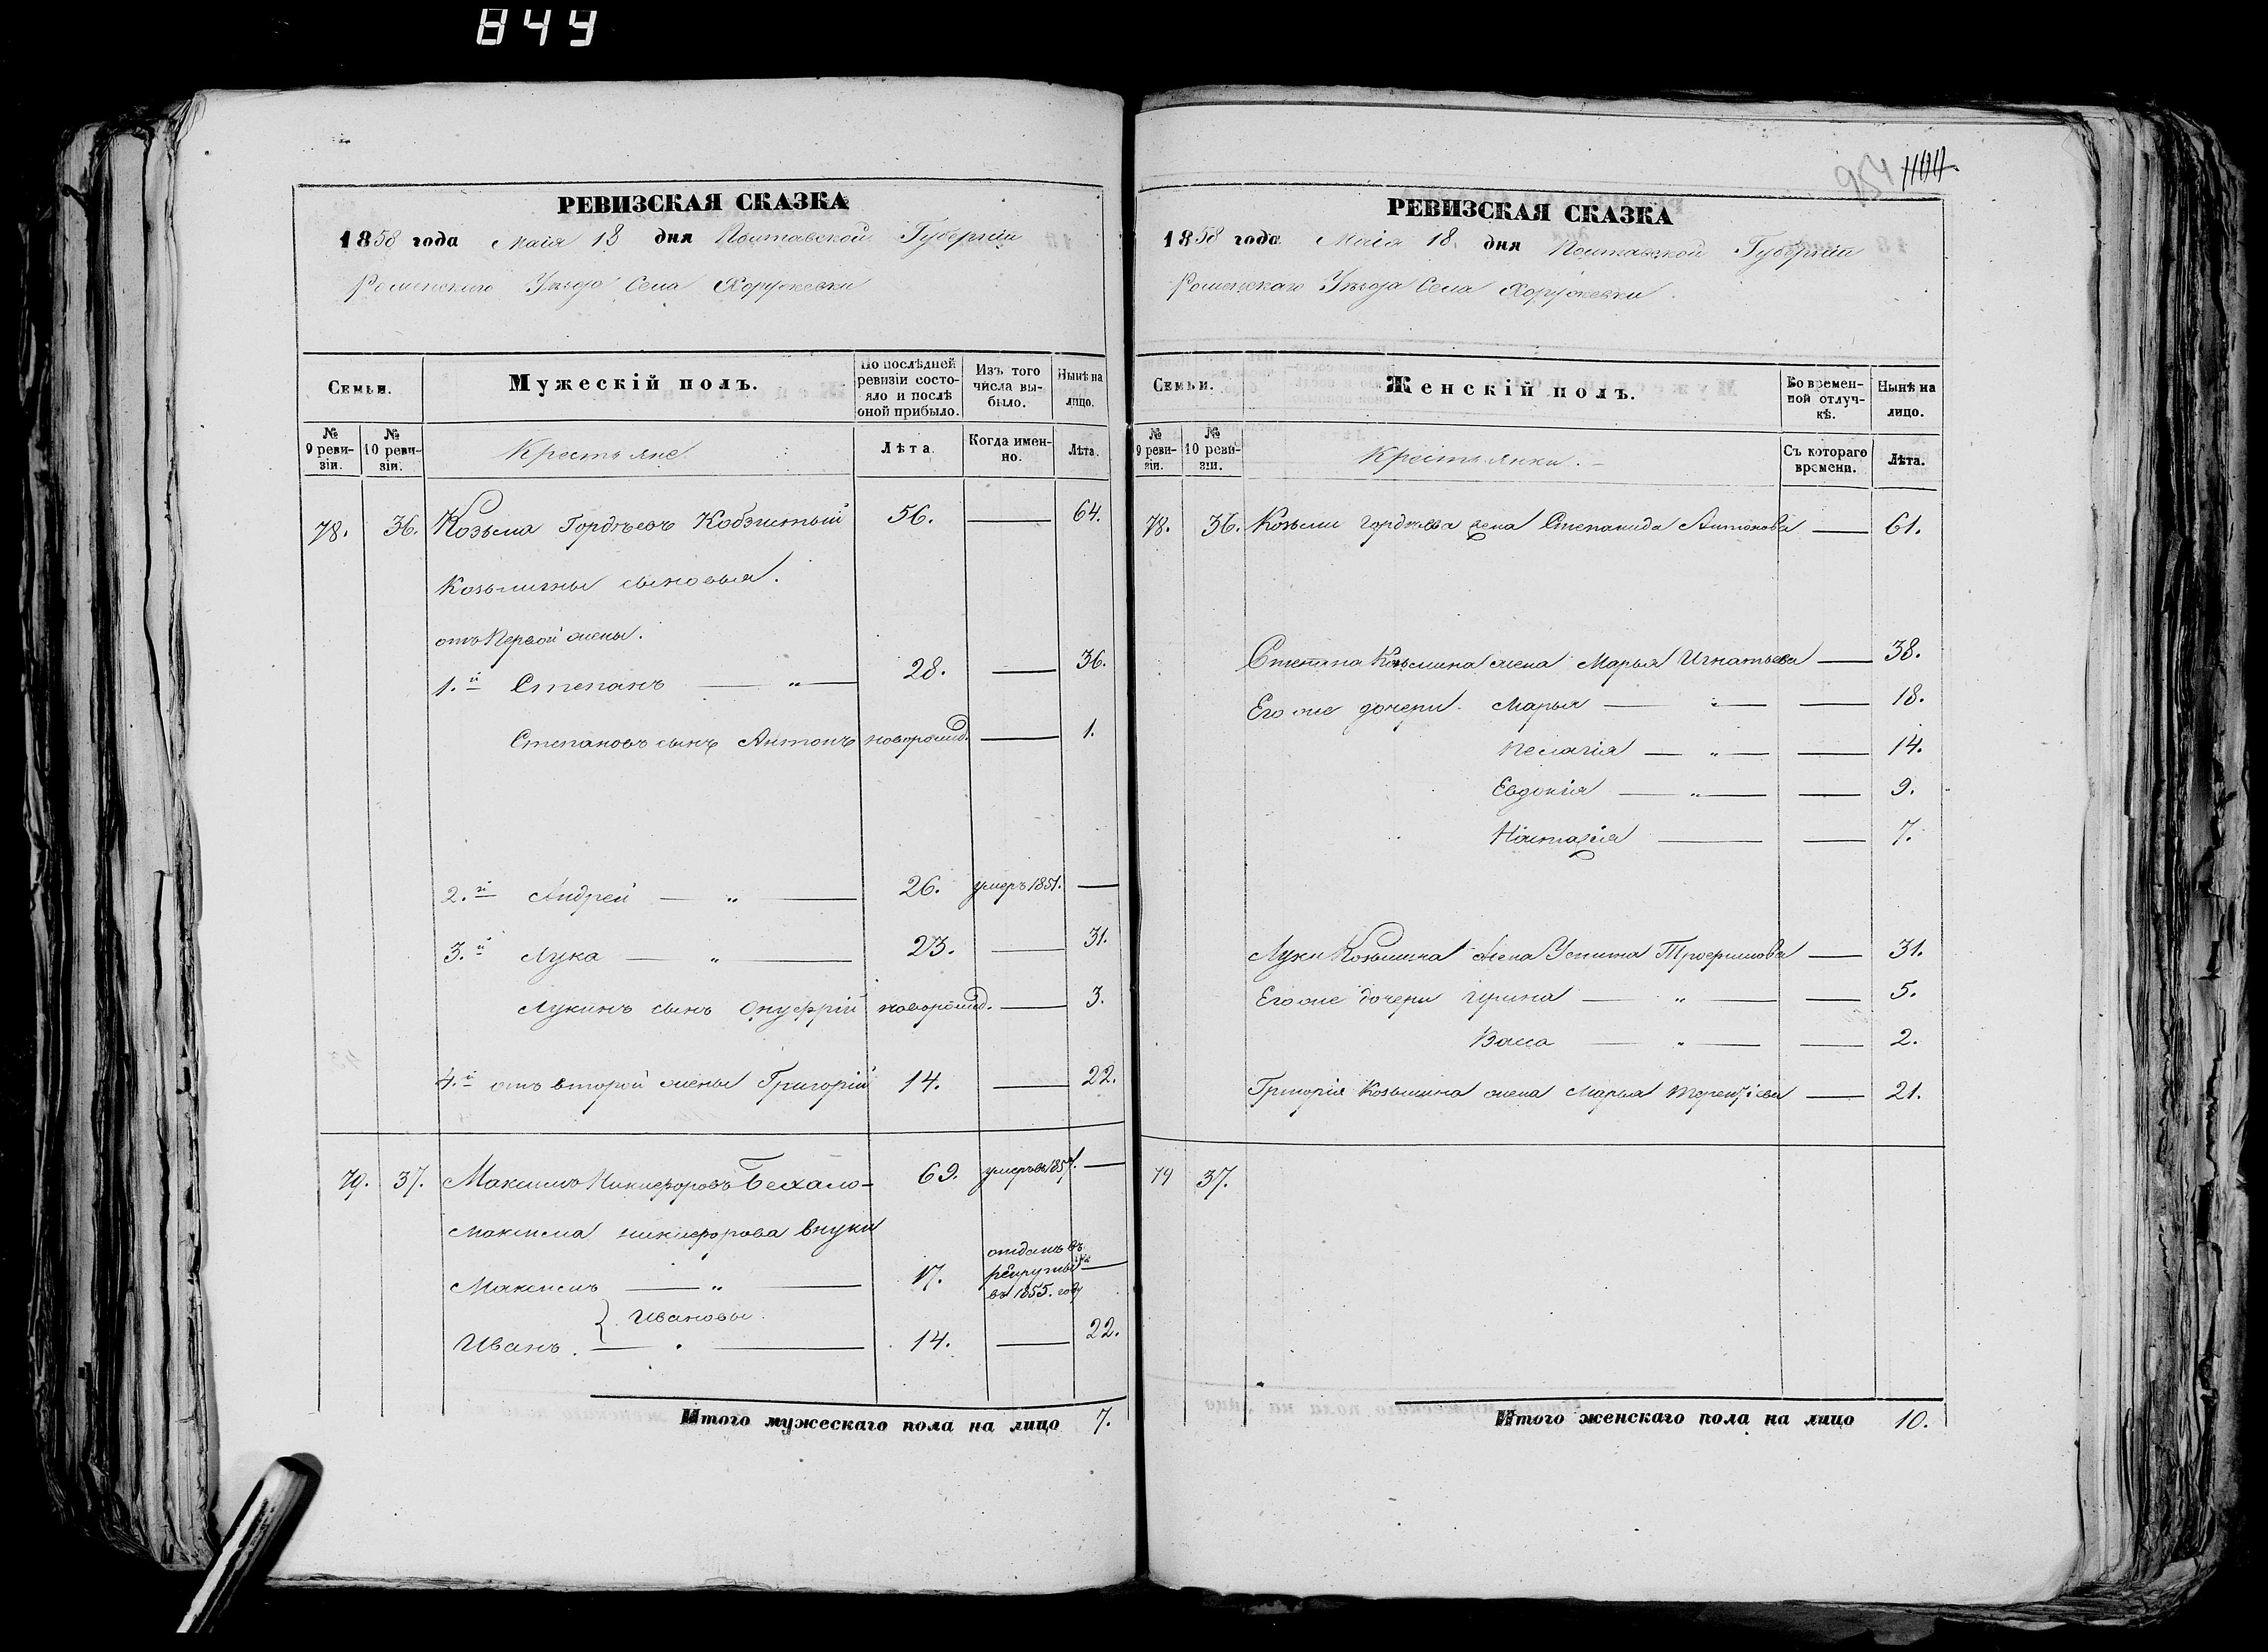 849
РЕВИЗСКАЯ СКАЗКА
1858 года Маія 18 дня Полтавской Губерніи
Роменскаго Уѣзда Села Хоружевки
Семьи.
Мужескій полъ.
По послѣдней ревизіи состояло и послѣ оной прибыло.
Изъ того числа выбыло.
Нынѣ на лицо.
№ 9 ревизіи.
№ 10 ревизіи.
Крестьяне
Лѣта.
Когда именно.
Лѣта.
78. 36. Козьма Гордѣевъ Кобзистый 56. — 64.
Козьмины сыновья.
отъ Первой жены.
1.й Степанъ — „ — 28. — 36.
Степановъ сынъ Антонъ новорожд. — 1.
2.й Андрей — „ — 26. умеръ 1851. —
3.й Лука — „ — 23. — 31.
Лукинъ сынъ Онуфрій новорожд. — 3.
4.й отъ второй жены Григорій 14. — 22.
79. 37. Максимъ Никифоровъ 69. —
Максима Никифорова внуки
Максимъ — „ — 17. отданъ въ рекруты въ 1855. году —
} Ивановы
Иванъ. — 14. — 22.
Итого мужескаго пола на лицо 7.
954
РЕВИЗСКАЯ СКАЗКА
1858 года Маія 18 дня Полтавской Губерніи
Роменскаго Уѣзда Села Хоружевки
Семьи.
Женскій полъ.
Во временной отлучкѣ.
Нынѣ на лицо.
№ 9 ревизіи.
№ 10 ревизіи.
Крестьянки. —
Съ котораго времени.
Лѣта.
78. 36. Козьмы Гордѣева жена Степанида Антонова — 61.
Степана Козьмина жена Марья Игнатьева — 38.
Его же дочери Марья — „ — — 18.
Пелагія — „ — — 14.
Евдокія — „ — — 9.
Настасія — — 7.
Луки Козьмина жена Устина Трофимова — 31.
Его же дочери Ирина — „ — — 5.
Васса — „ — — 2.
Григорія Козьмина жена Марья Терентіева — 21.
79 37.
Итого женскаго пола на лицо 10.